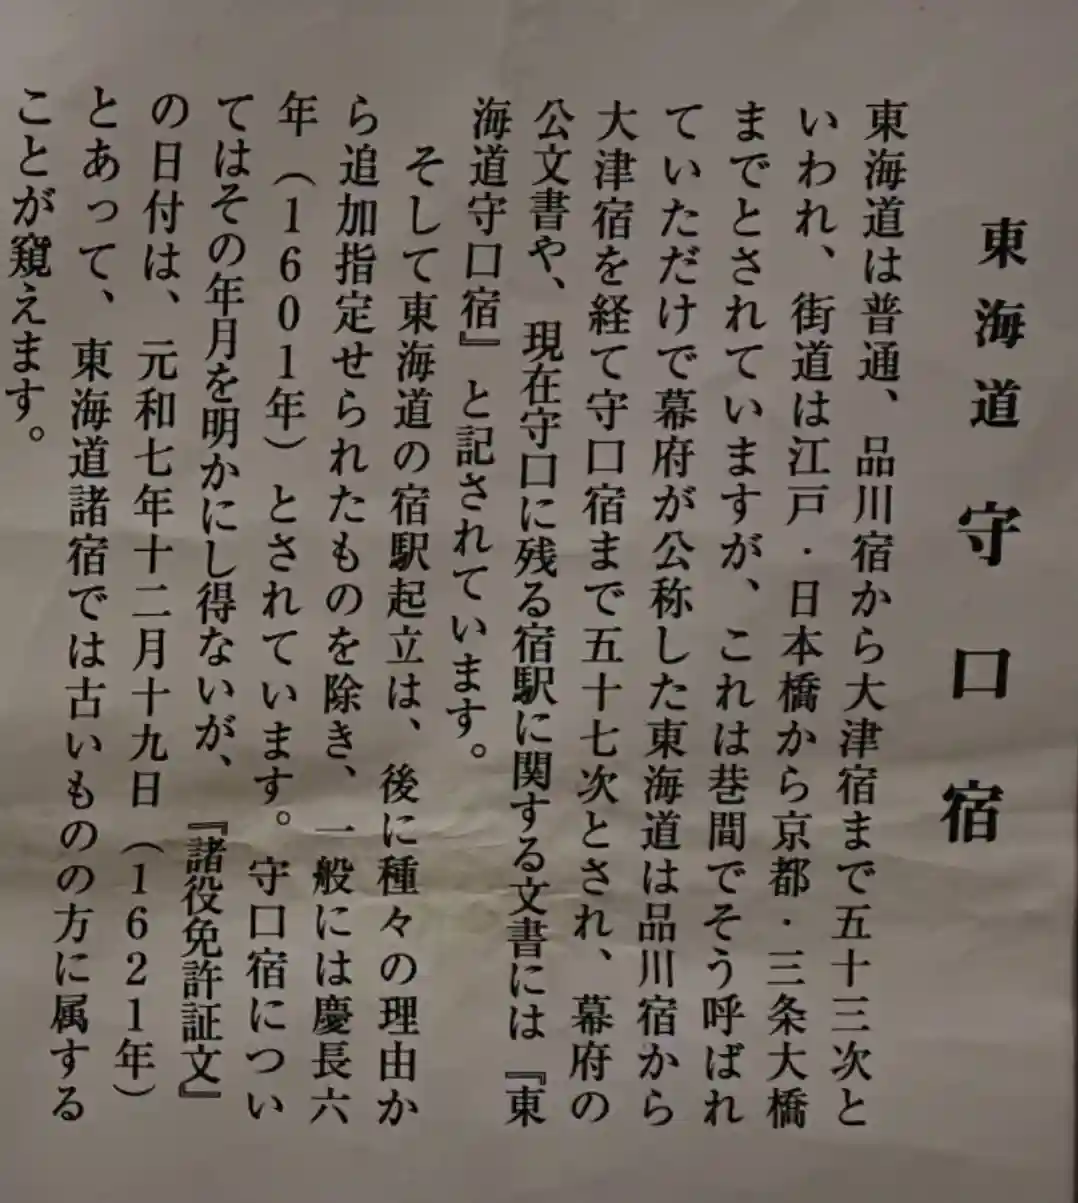 東海道守口宿
東海道は普通、品川宿から大津宿まで五十三次と
いわれ、街道は江戸・日本橋から京都・三条大橋
までとされていますが、これは巷間でそう呼ばれ
ていただけで幕府が公称した東海道は品川宿から
大津宿を経て守口宿まで五十七次とされ、幕府の
公文書や、現在守口に残る宿駅に関する文書には『東
海道守口宿』と記されています。
そして東海道の宿駅起立は、後に種々の理由か
ら追加指定せられたものを除き、一般には慶長六
年（1601年）とされています。守口宿につい
てはその年月を明かにし得ないが、『諸役免許証文』
の日付は、元和七年十二月十九日（1621年）
とあって、東海道諸宿では古いものの方に属する
ことが窺えます。